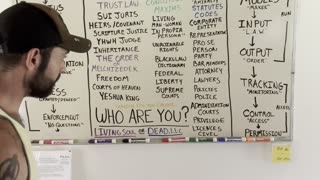 TRUST LAW
SUI JURIS
HEIRS/COVENANT
SCRIPTURE JUSTICE
YHWH JUDGE
INHERITANCE
THE ORDER
OF
MELCHIZEDEK
FREEDOM
COURTS OF HEAVEN
YESHUA KING
MAXIMS
LIVING
MAN-WOMAN
IN PROPRIA
PERSONA
UNALIENABLE
RIGHTS
BLACKLAW
DICTIONARY
FEDERAL
LIBERTY
SUPREME
COURTS
STATUTES
CODES
CORPORATE
ENTITY
REPRESENTATION
PRO SE
PERSON
PARTY
BAR MEMBERS,
ATTORNEY
LAWYERS
POLICIES
POLICE
ADMINISTRATION
COURTS
PRIVILEGE
LICENSES
CIVIL
INPUT
"LAW"
OUTPUT
"ORDER"
TRACKING
"MONITORING"
CONTROL
"ACCESS"
PERMISSION
ENFORCEMENT
"NO QUESTIONS"
WHO ARE YOU?
LIVING SOUL OR DEAD, LLC